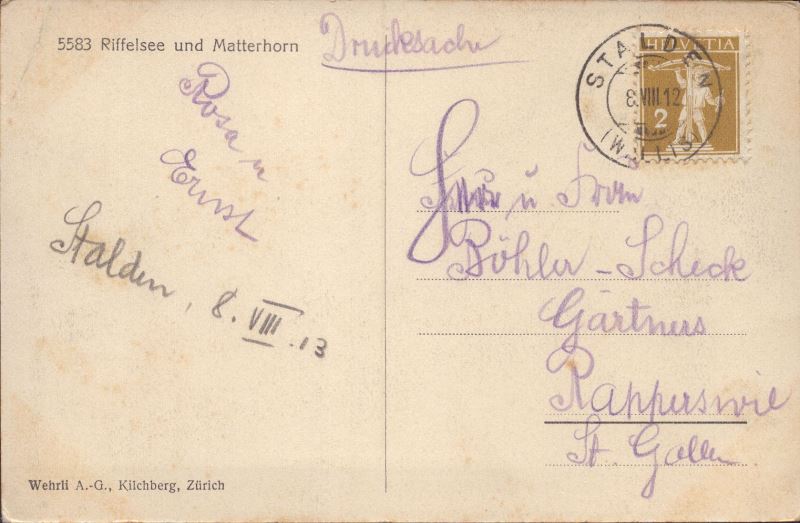 5583 Riffelsee und Matterhorn
Drucksache
Rosa u
Ernst
Stalden, 8. VIII. 13
Wehrli A.-G., Kilchberg, Zürich
STALDEN
8.VIII.12
(WALLIS)
HELVETIA
2
u. Frau
Böhler-Scheck
Gärtners
Rapperswil
St. Gallen